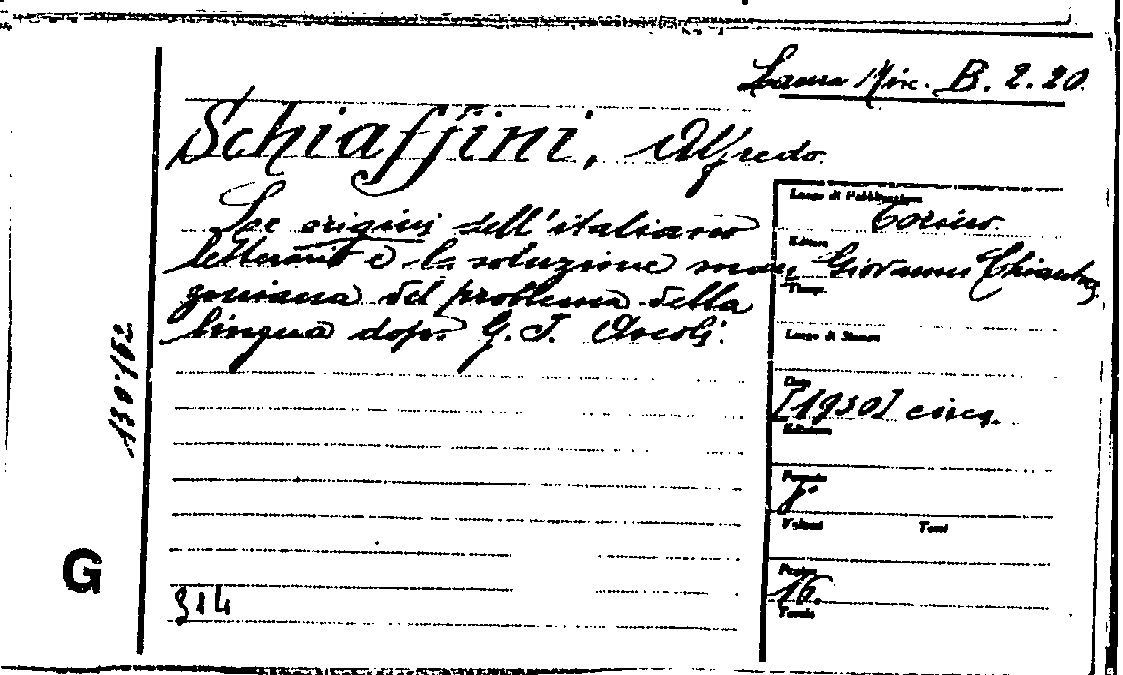 Laura Misc. B. 2. 20.
Schiaffini, Alfredo.
Le origini dell'italiano
letterario e la soluzione man
zoniana del problema della
lingua dopo G. I. Ascoli.
Luogo di Pubblicazione
Torino.
Editore
Giovanni Chiantore
Tipogr.
Luogo di Stampa
Data
[1930] circa.
Edizione
Formato
8°
Volumi Tomi
Pagine
16.
Tavole
130.162
G
314